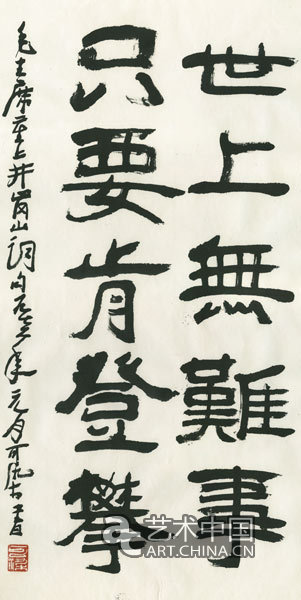 世上無難事
只要肯登攀
毛主席重上井崗山詞句七六年元月可染書
可染
艺术中国
ART.CHINA.CN